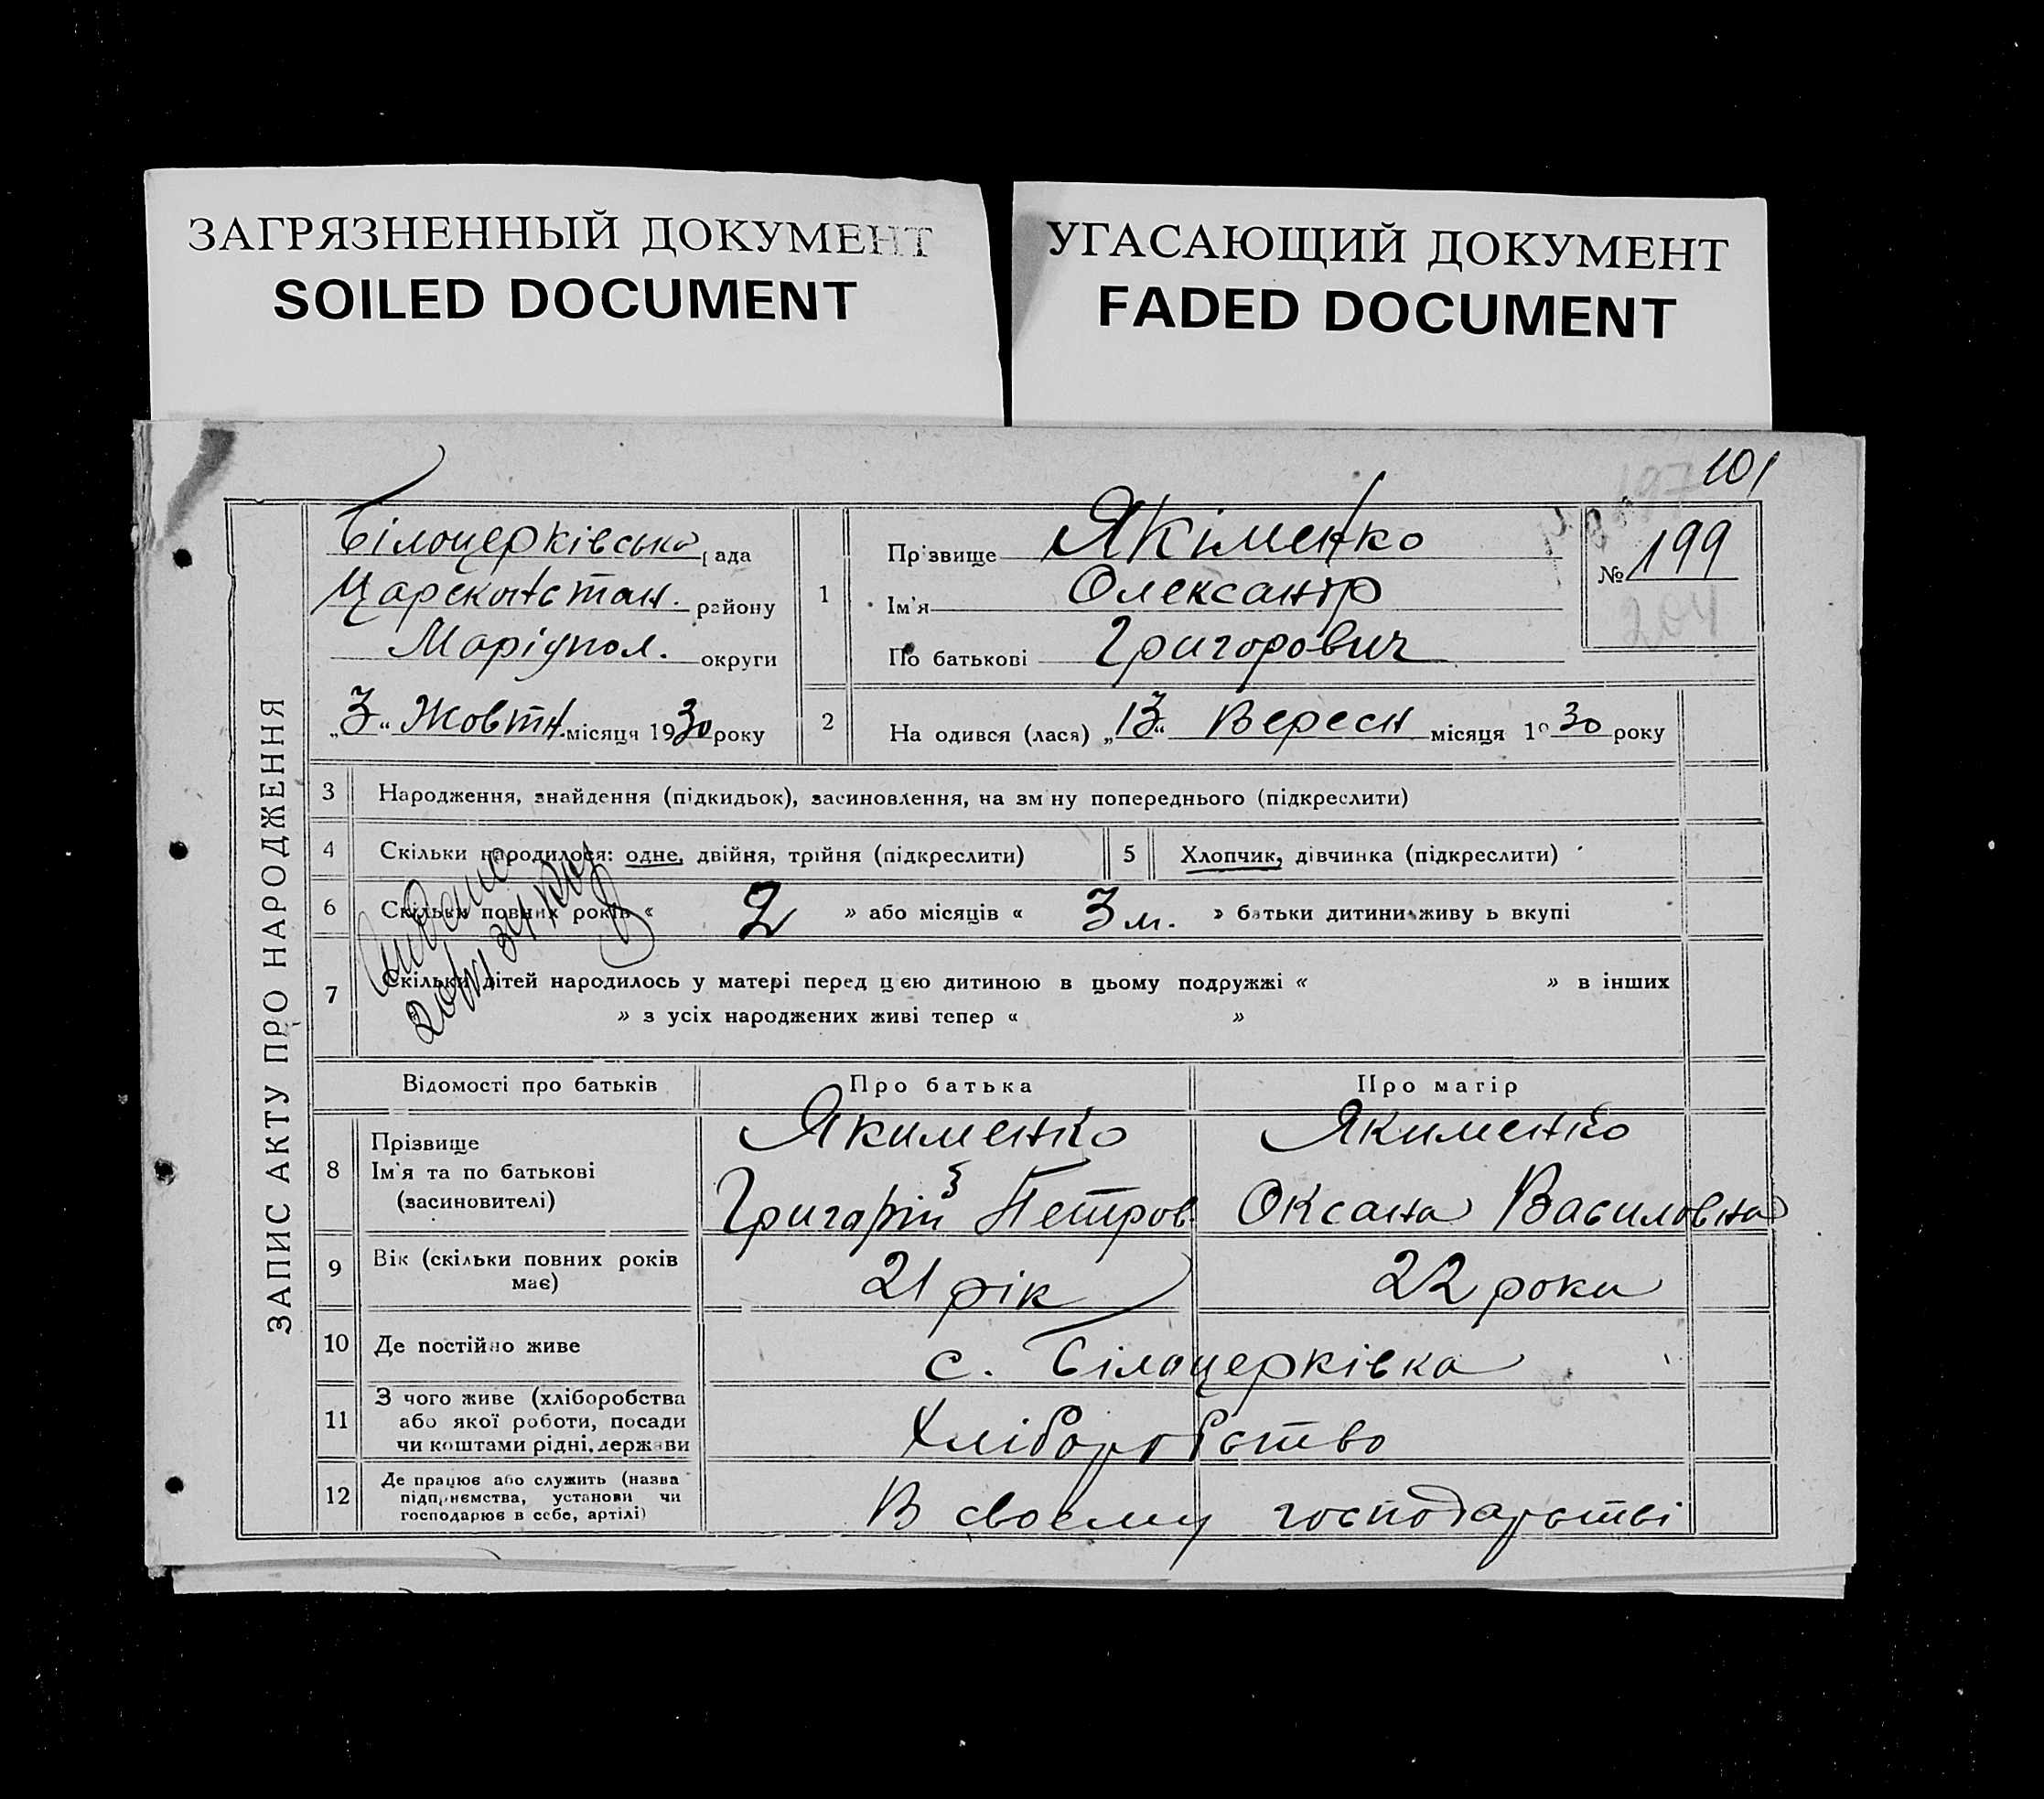 ЗАГРЯЗНЕННЫЙ ДОКУМЕНТ
SOILED DOCUMENT
УГАСАЮЩИЙ ДОКУМЕНТ
FADED DOCUMENT
101
197
ЗАПИС АКТУ ПРО НАРОДЖЕННЯ
Білоцерківська рада
Цареконстан. району
Маріупол. округи
„3“ Жовтн. місяця 1930 року
1
Пр звище Якіменко
Ім’я Олександр
По батькові Григорович
№ 199
204
2
На одився (лася) „13“ Вересн місяця 1930 року
3 Народження, знайдення (підкидьок), засиновлення, на зм ну попереднього (підкреслити)
4 Скільки народилося: одне, двійня, трійня (підкреслити)
5 Хлопчик, дівчинка (підкреслити)
6 Скільки повних років « 2 » або місяців « 3 м. » батьки дитини живу ь вкупі
7 Скільки дітей народилось у матері перед цєю дитиною в цьому подружжі « » в інших
» з усіх народжених живі тепер « »
Відомості про батьків
Про батька
Про матір
8
Прізвище
Ім’я та по батькові
(засиновителі)
Якименко
Григорій Петров
Якименко
Оксана Василовна
9
Вік (скільки повних років
має)
21 рік
22 роки
10 Де постійно живе
с. Білоцерківка
11
З чого живе (хліборобства
або якої роботи, посади
чи коштами рідні, держави
Хліборобство
12
Де працює або служить (назва
підприємства, установи чи
господарює в себе, артілі)
В своєму господарстві